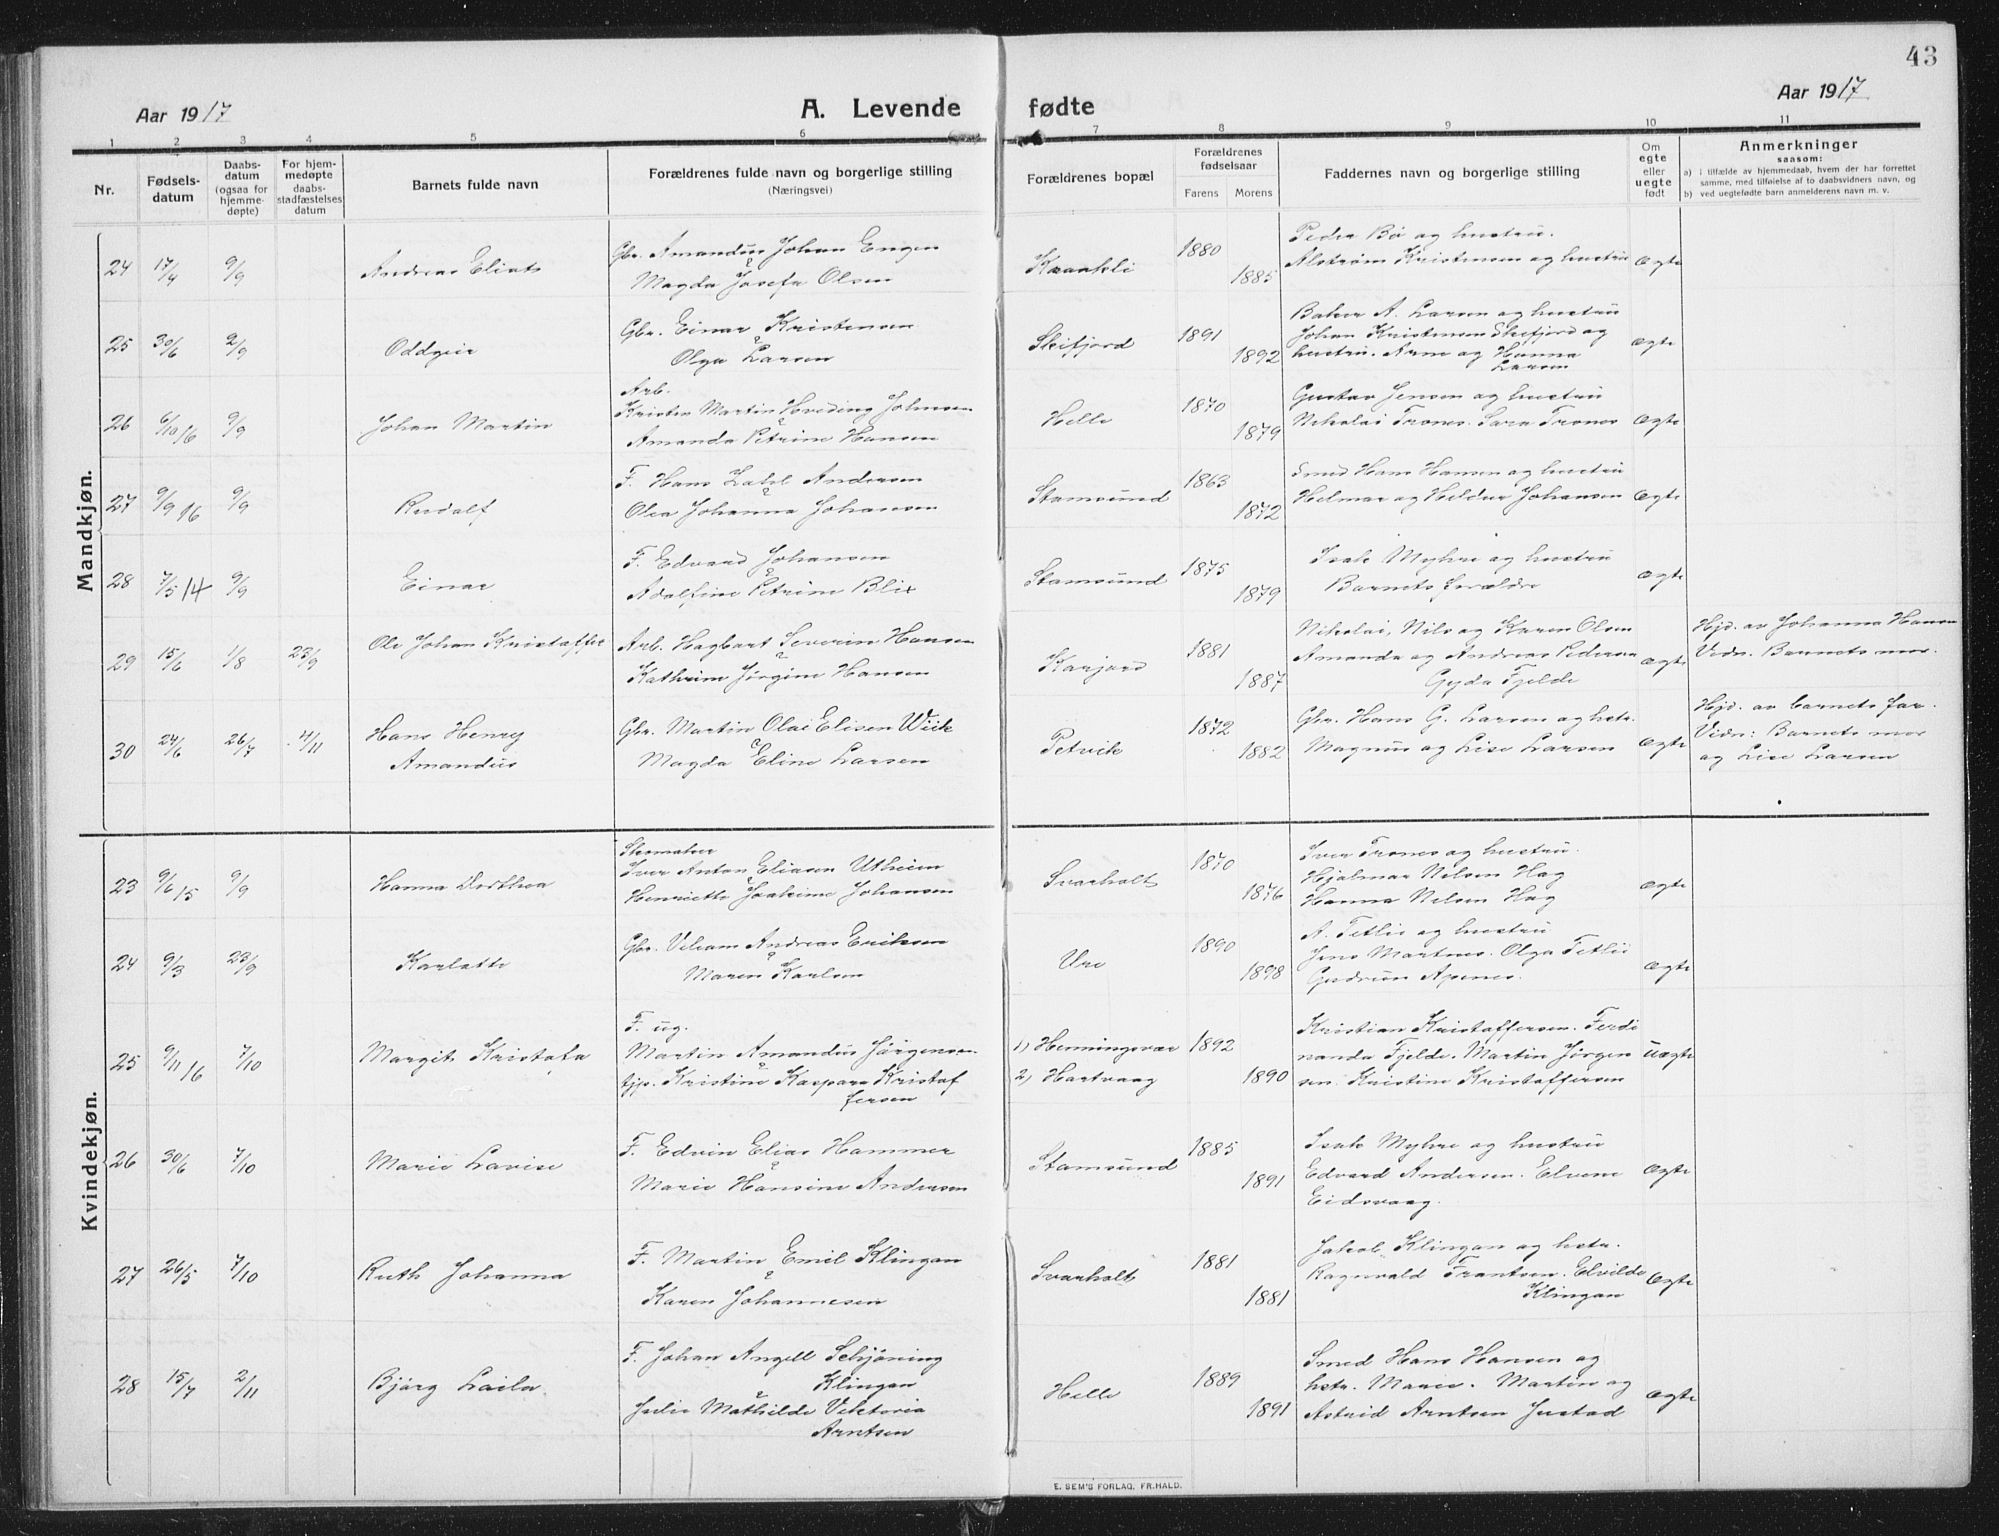 43
Aar 1917
A. Levende fødte
Aar 1917
1 2 3 4 5 6 7 8 9 10 11
Nr.
Fødsels-
datum
Daabs-
datum
(ogsaa for
hjemme-
døpte)
For hjem-
medøpte
daabs-
stadfæstelses
datum
Barnets fulde navn
Forældrenes fulde navn og borgerlige stilling
(Næringsvei)
Forældrenes bopæl
Forældrenes
fødselsaar
Farens Morens
Faddernes navn og borgerlige stilling
Om
egte
eller
uegte
født
Anmerkninger
saasom:
a) i tilfælde av hjemmedaab, hvem der har forrettet
samme, med tilføielse af to daabsvidners navn, og
b) ved uegtefødte barn anmelderens navn m. v.
Mandkjøn.
24 17/4 9/9 Andreas Eliats
Gbr. Amandus Johan Engen
Magda Josefa Olsen
Kraakli 1880 1885
Peder Bø og hustru.
Alstrøm Kristensen og hustru
ægte
25 30/6 2/9 Oddgeir
Gbr. Einar Kristensen
Olga Larsen
Skifjord 1891 1892
Baker A. Larsen og hustru
Johan Kristensen Skifjord og
hustru. Arne og Hanna
Larsen
ægte
26 6/10 16 9/9 Johan Martin
Arb.
Kristen Martin Hveding Johnsen
Amanda Petrine Hansen
Helle 1870 1879
Gustav Jensen og hustru
Nikolai Trones. Sara Trones
ægte
27 9/9 16 9/9 Rudolf
F. Hans Dahl Andersen
Olea Johanna Johansen
Stamsund 1863 1872
Smed Hans Hansen og hustru
Helmar og Heldur Johansen
ægte
28 7/5 14 9/9 Einar
F. Edvard Johansen
Adolfine Petrine Blix
Stamsund 1875 1879
Isak Myhre og hustru
Barnets forældre
ægte
29 15/6 1/8 23/9 Ole Johan Kristoffer
Arb. Hagbart Severin Hansen
Kathrine Jørgine Hansen
Karjord 1881 1887
Nikolai, Nils og Karen Olsen
Amanda og Andreas Pedersen
Gyda Fjelde
ægte
Hjd. av Johanna Hansen
Vidn. Barnets mor.
30 24/6 26/7 4/11 Hans Henry
Amandus
Gbr. Martin Olai Elisen Wiik
Magda Eline Larsen
Petvik 1872 1882
Gbr. Hans G. Larsen og hstr.
Magnus og Lise Larsen
ægte
Hjd. av barnets far.
Vidn: Barnets mor
og Lise Larsen
Kvindekjøn.
23 9/6 15 9/9 Hanna Dorthea
Skomaker
Iver Anton Eliasen Utheim
Henriette Joakime Johansen
Svarholt 1870 1876
Iver Trones og hustru.
Hjalmar Nilsen Hag
Hanna Nilsen Hag
ægte
24 9/3 23/9 Karlotte
Gbr. Veliam Andreas Eriksen
Maren Karlsen
Ure 1890 1898
A. Tetlie og hustru
Jens Martnes. Olga Tetlie
Gudrun Apenes.
ægte
25 9/11 16 7/10 Margit Kristofa
F. ug.
Martin Amandus Jørgensen
tjp. Kristine Kaspara Kristof
fersen
1) Henningsvær 1892
2) Hartvaag 1890
Kristian Kristoffersen. Ferdi
nanda Fjelde. Martin Jørgen
sen. Kristine Kristoffersen
uægte
26 30/6 7/10 Marie Lovise
F. Edvin Elias Hammer
Marie Hansine Andersen
Stamsund 1885 1891
Isak Myhre og hustru
Edvard Andersen. Elvene
Eidsvaag.
ægte
27 26/5 7/10 Ruth Johanna
F. Martin Emil Klingan
Karen Johannesen
Svarholt 1881 1881
Jakob Klingan og hstr.
Ragnvald Frantsen. Elvilde
Klingan
ægte
28 15/7 2/11 Bjørg Laila
F. Johan Angell Schjøning
Klingan
Julie Mathilde Viktoria
Arntsen
Helle 1889 1891
Smed Hans Hansen og
hstr. Marie. Martin og
Astrid Arntsen Justad
ægte
E. SEM'S FORLAG, FR.HALD.